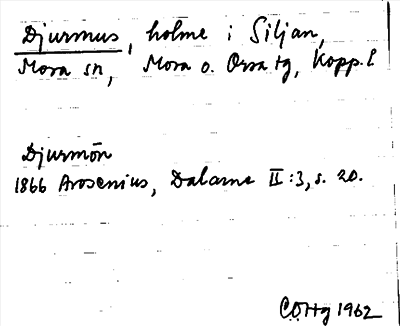 Djurmus, holme i Siljan,
Mora sn, Mora o. Orsa tg, Kopp. l
Djurmön
1866 Arosenius, Dalarne II:3, s. 20.
COHg 1962